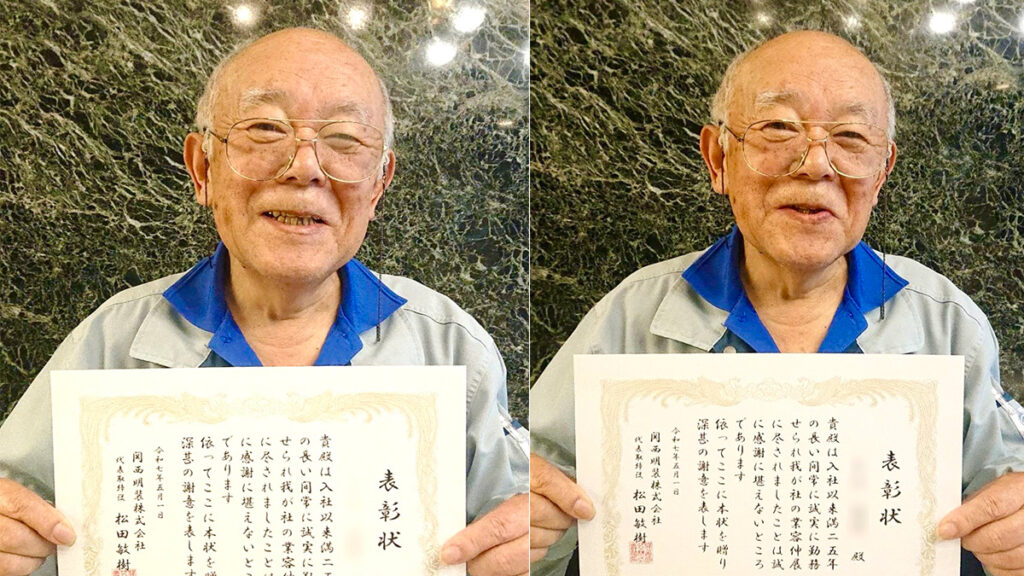 表彰状
貴殿は入社以来満二
の長い間常に誠実に勤
せられ我が社の業容伸
に尽されましたことは
に感謝に堪えないところ
であります
依ってここに本状を贈り
深甚の謝意を表します
令和七年五月一日
関西明装株式会社
代表取締役 松田敏樹
表彰状
殿
貴殿は入社以来満二五年
の長い間常に誠実に勤務
せられ我が社の業容伸展
に尽されましたことは誠
に感謝に堪えないところ
であります
依ってここに本状を贈り
深甚の謝意を表します
令和七年五月一日
関西明装株式会社
代表取締役 松田敏樹